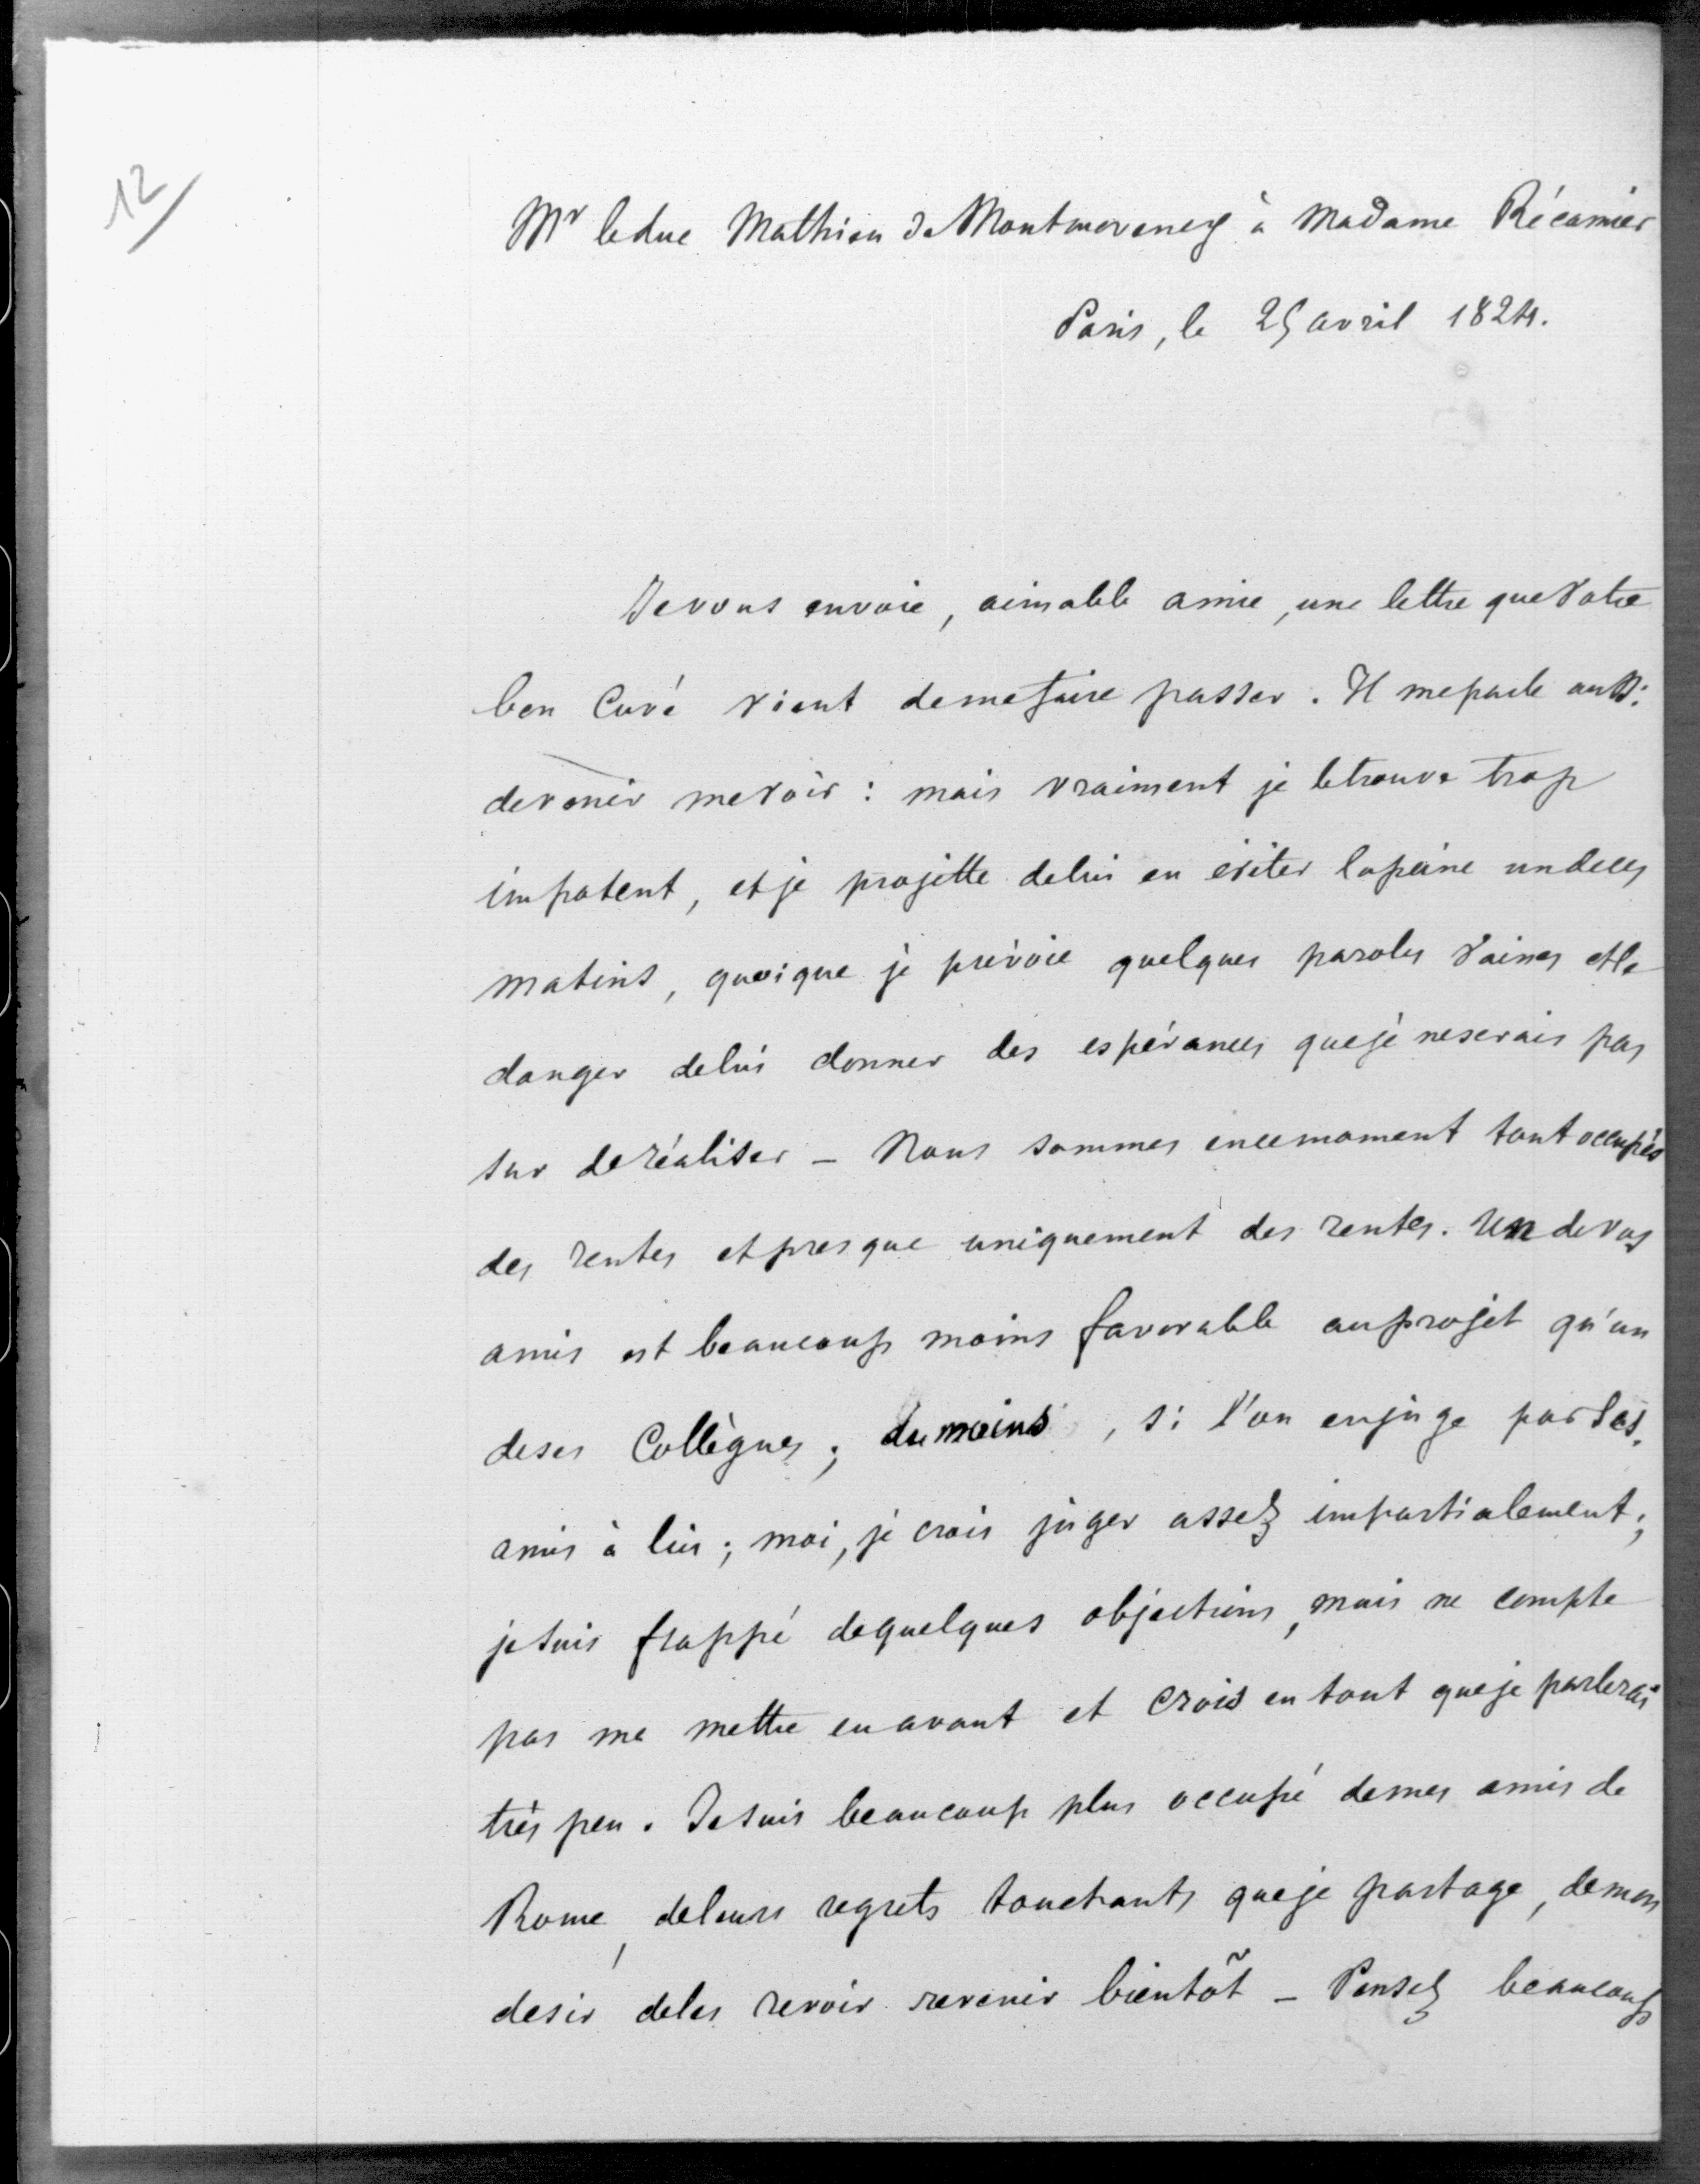 12/
Mr le duc Mathieu de Montmorency à Madame Récamier
Paris, le 25 avril 1824.
Je vous envoie, aimable amie, une lettre que votre
bon Curé vient de me faire passer. Il me parle aussi
de venir me voir : mais vraiment je le trouve trop
impotent, et je projette de lui en éviter la peine un de ces
matins, quoique je prévoie quelques paroles vaines et le
danger de lui donner des espérances que je ne serais pas
sur de réaliser _ Nous sommes en ce moment tout occupés
des rentes et presque uniquement des rentes. Un de vos
amis est beaucoup moins favorable au projet qu'un
de ses Collègues ; du moins, si l'on en juge par les
amis à lui ; moi, je crois juger assez impartialement ;
je suis frappé de quelques objections, mais ne compte
pas me mettre en avant et crois en tout que je parlerai
très peu. Je suis beaucoup plus occupé de mes amis de
Rome, de leurs regrets touchants que je partage, de mon
desir de les revoir revenir bientôt _ Pensez beaucoup